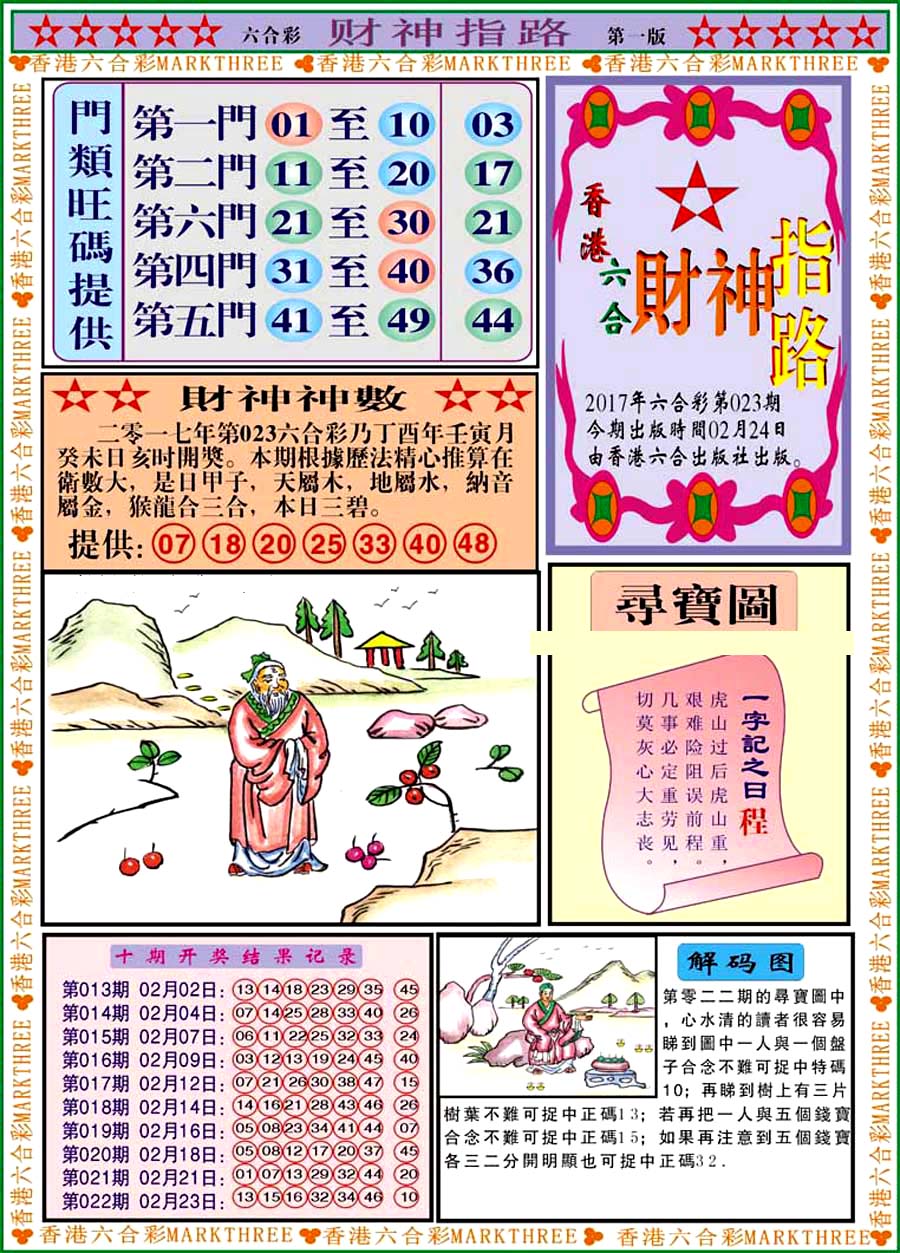 六合彩 财神指路 第一版
香港六合彩MARKTHREE 香港六合彩MARKTHREE 香港六合彩MARKTHREE
門類旺碼提供
第一門 01 至 10 03
第二門 11 至 20 17
第六門 21 至 30 21
第四門 31 至 40 36
第五門 41 至 49 44
香港六合
財神
指路
2017年六合彩第023期
今期出版時間02月24日
由香港六合出版社出版。
財神神數
二零一七年第023六合彩乃丁酉年壬寅月
癸未日亥时開獎。本期根據歷法精心推算在
衛數大，是日甲子，天屬木，地屬水，納音
屬金，猴龍合三合，本日三碧。
提供: 07 18 20 25 33 40 48
尋寶圖
一字記之曰程
虎山过后虎山重，
艰难险阻误前程。
几事必定重劳见，
切莫灰心大志丧。
十期开奖结果记录
第013期 02月02日: 13 14 18 23 29 35 45
第014期 02月04日: 07 14 25 28 33 40 26
第015期 02月07日: 06 11 22 25 32 33 24
第016期 02月09日: 03 12 13 19 24 45 40
第017期 02月12日: 07 21 26 30 38 47 15
第018期 02月14日: 14 16 21 28 43 46 26
第019期 02月16日: 05 08 23 34 41 44 07
第020期 02月18日: 05 08 12 17 20 37 45
第021期 02月21日: 01 07 13 29 32 44 20
第022期 02月23日: 13 15 16 32 34 46 10
解码图
第零二二期的尋寶圖中
，心水清的讀者很容易
睇到圖中一人與一個盤
子合念不難可捉中特碼
10；再睇到樹上有三片
樹葉不難可捉中正碼13；若再把一人與五個錢寶
合念不難可捉中正碼15；如果再注意到五個錢寶
各三二分開明顯也可捉中正碼32.
香港六合彩MARKTHREE 香港六合彩MARKTHREE 香港六合彩MARKTHREE
香港六合彩MARKTHREE 香港六合彩MARKTHREE 香港六合彩MARKTHREE 香港六合彩MARKTHREE 香港六合彩MARKTHREE
香港六合彩MARKTHREE 香港六合彩MARKTHREE 香港六合彩MARKTHREE 香港六合彩MARKTHREE 香港六合彩MARKTHREE